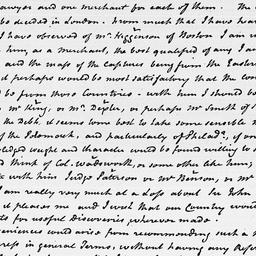 awyer and one merchant for each of them. The
be decided in London. From much that I have hear
I have observed of Mr. Higginson of Boston I am
him, as a merchant, the best qualified of any I
and the mass of the Captures being from the Eastern
d perhaps would be most satisfactory that the Com
d be from those Countries. With him I should b
Mr. King, or Mr. Dexter, or perhaps Mr. Smith of
the Debt, it seems to be best to take some sensible
of the Potomack, and particularly of Philada., if on
ledged weight and character could be found willing to
d think of Col. Wadsworth, or some other like him,
with him Judge Paterson or Mr. Benson, or Mr
I am really very much at a loss about
it pleases me and I wish that our Country would
ts for useful Discoveries wherever made.
eniences would arise from recommending such a
ress in general Terms, without having any